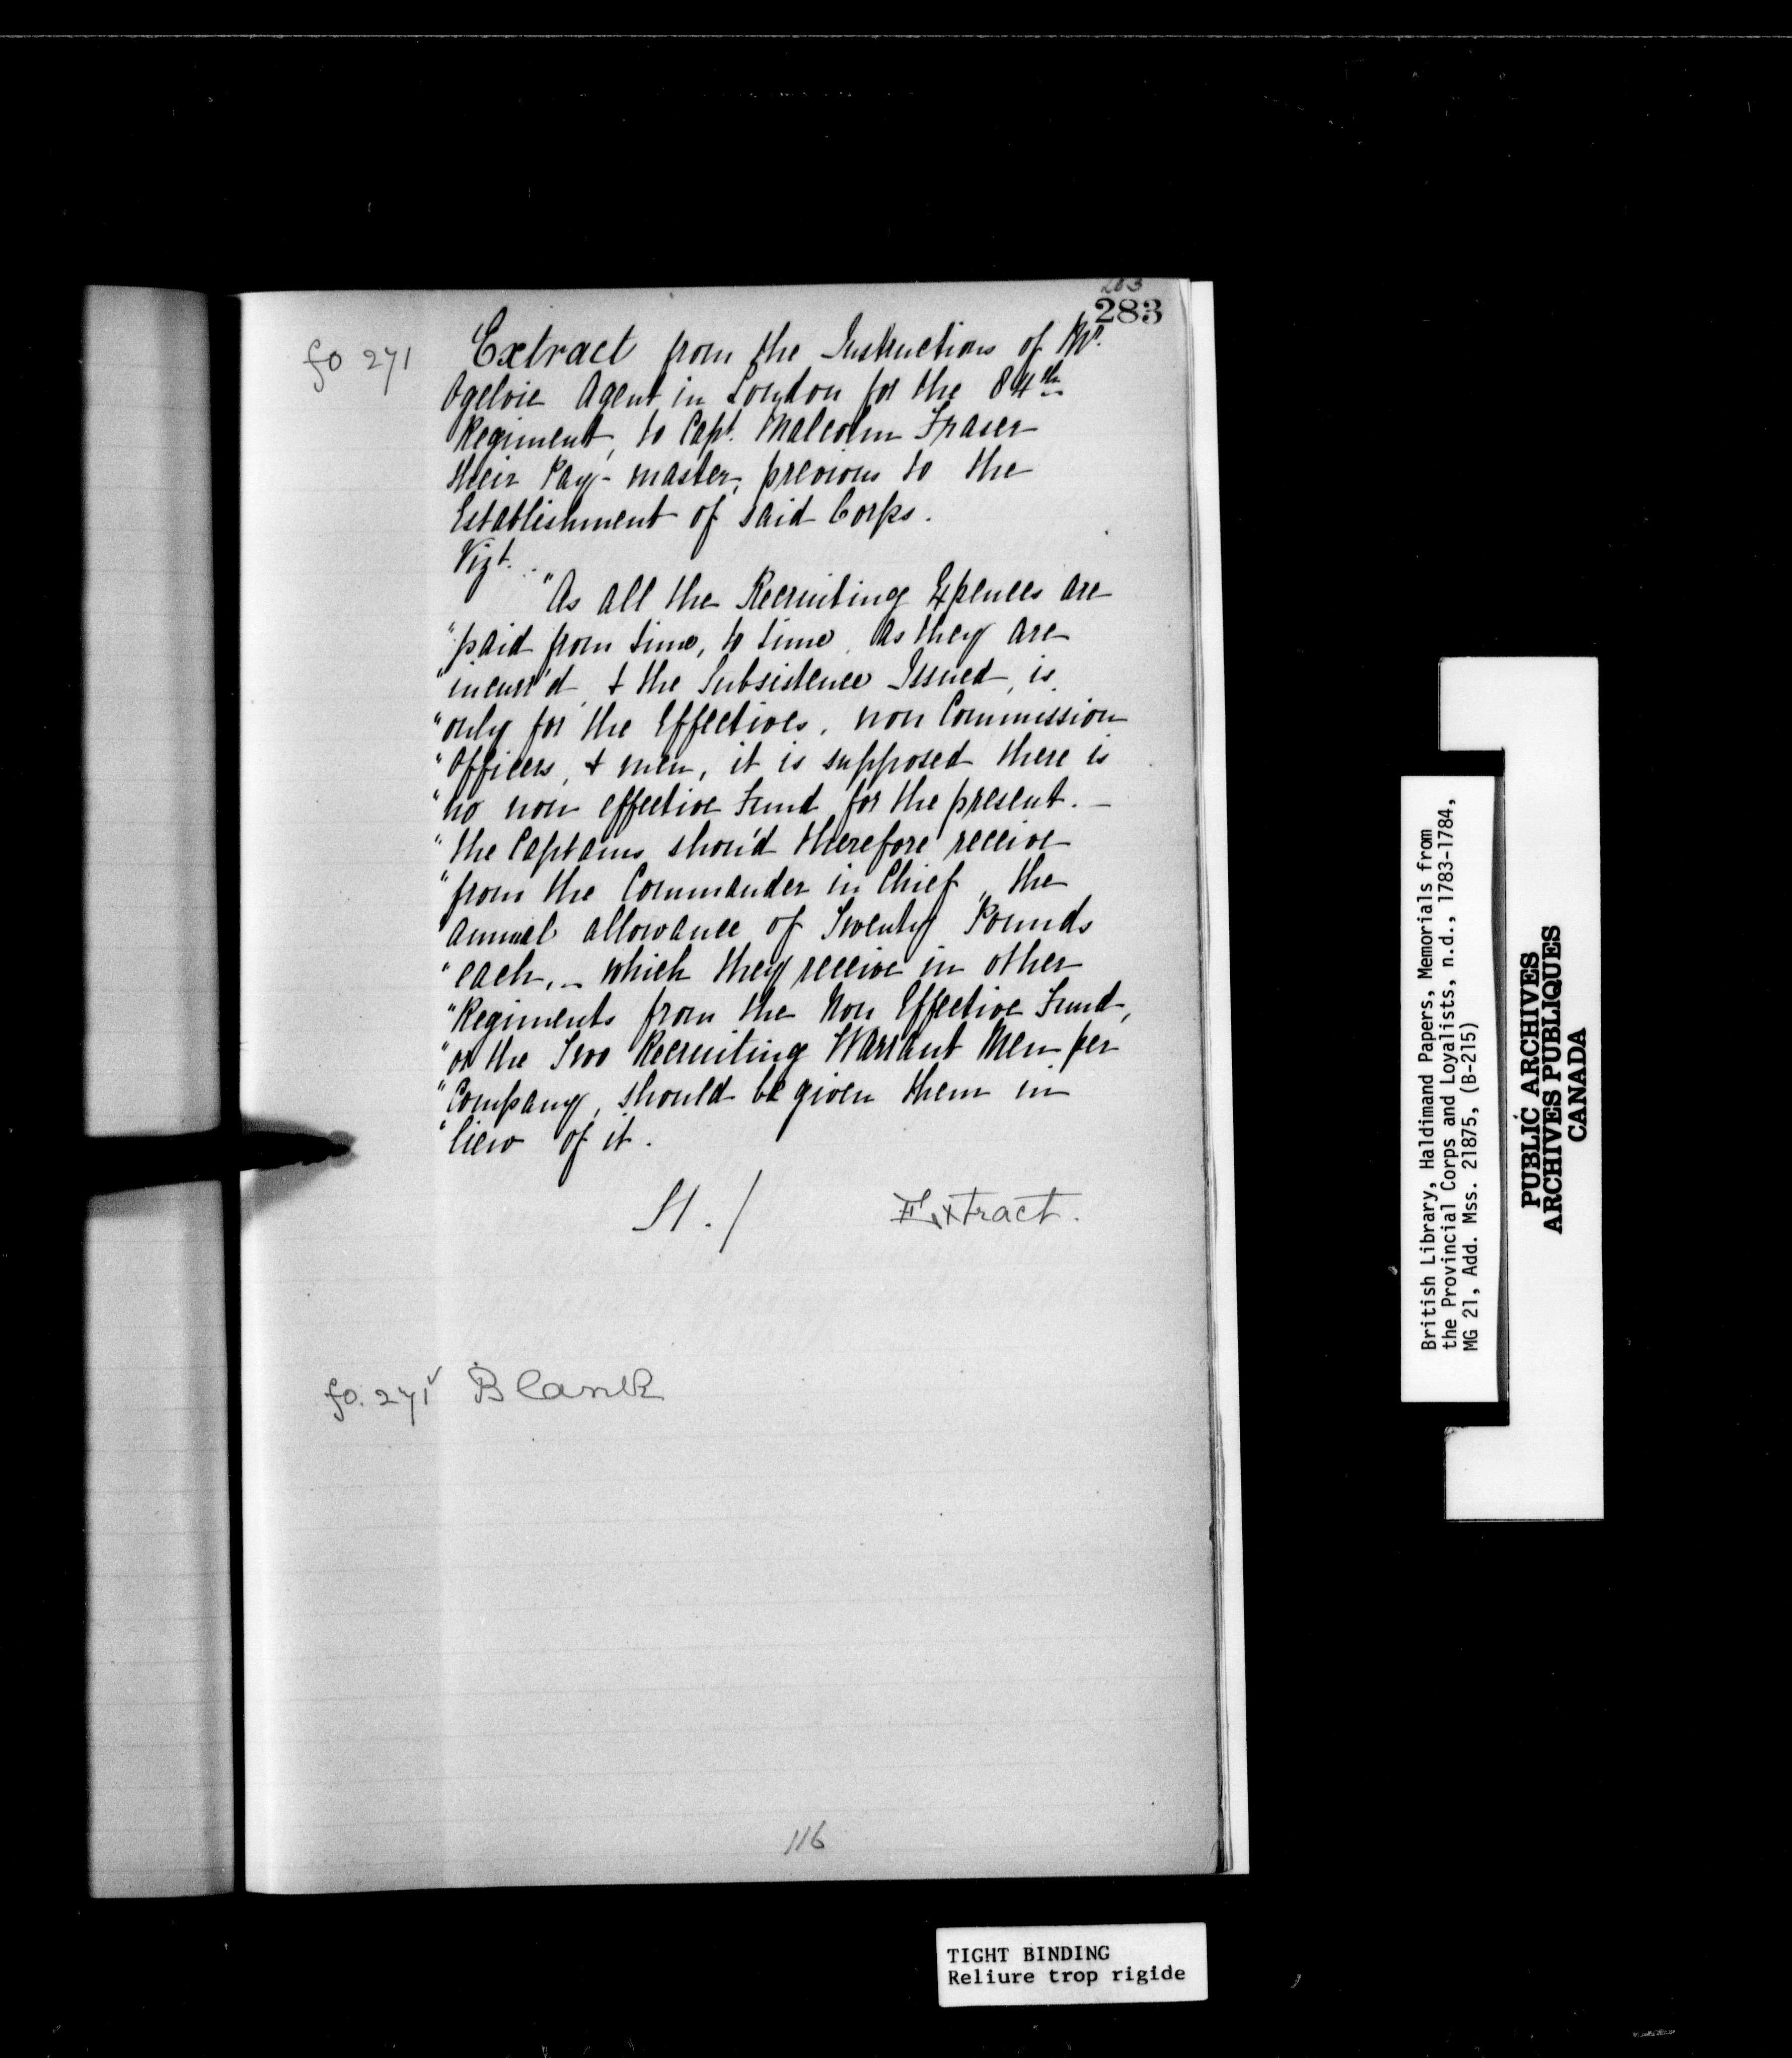 283
283
fo 271
Extract from the Instructions of Mr.
Ogelvie Agent in London for the 84th
Regiment, to Capt. Malcolm Fraser
their Pay-master, previous to the
Establishment of said Corps.
Vizt.
"As all the Recruiting Expences are
"paid from time, to time, as they are
"incurr'd, & the Subsistence Issued, is
"only for the Effectives, non Commission
"Officers, & men, it is supposed there is
"no non effective Fund for the present. —
"the Captains shou'd therefore receive
"from the Commander in Chief, the
"annual allowance of Twenty Pounds
"each, — which they receive in other
"Regiments from the Non Effective Fund,
"or the Two Recruiting Warrant Men per
"Company, should be given them in
"liew of it.
Extract.
fo. 271v Blank
116
British Library, Haldimand Papers, Memorials from
the Provincial Corps and Loyalists, n.d., 1783-1784,
MG 21, Add. Mss. 21875, (B-215)
PUBLIC ARCHIVES
ARCHIVES PUBLIQUES
CANADA
TIGHT BINDING
Reliure trop rigide